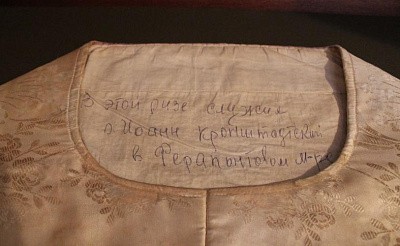 В этой ризе служил
о Иоанн Кронштадтский
в Ферапонтовом м-ре